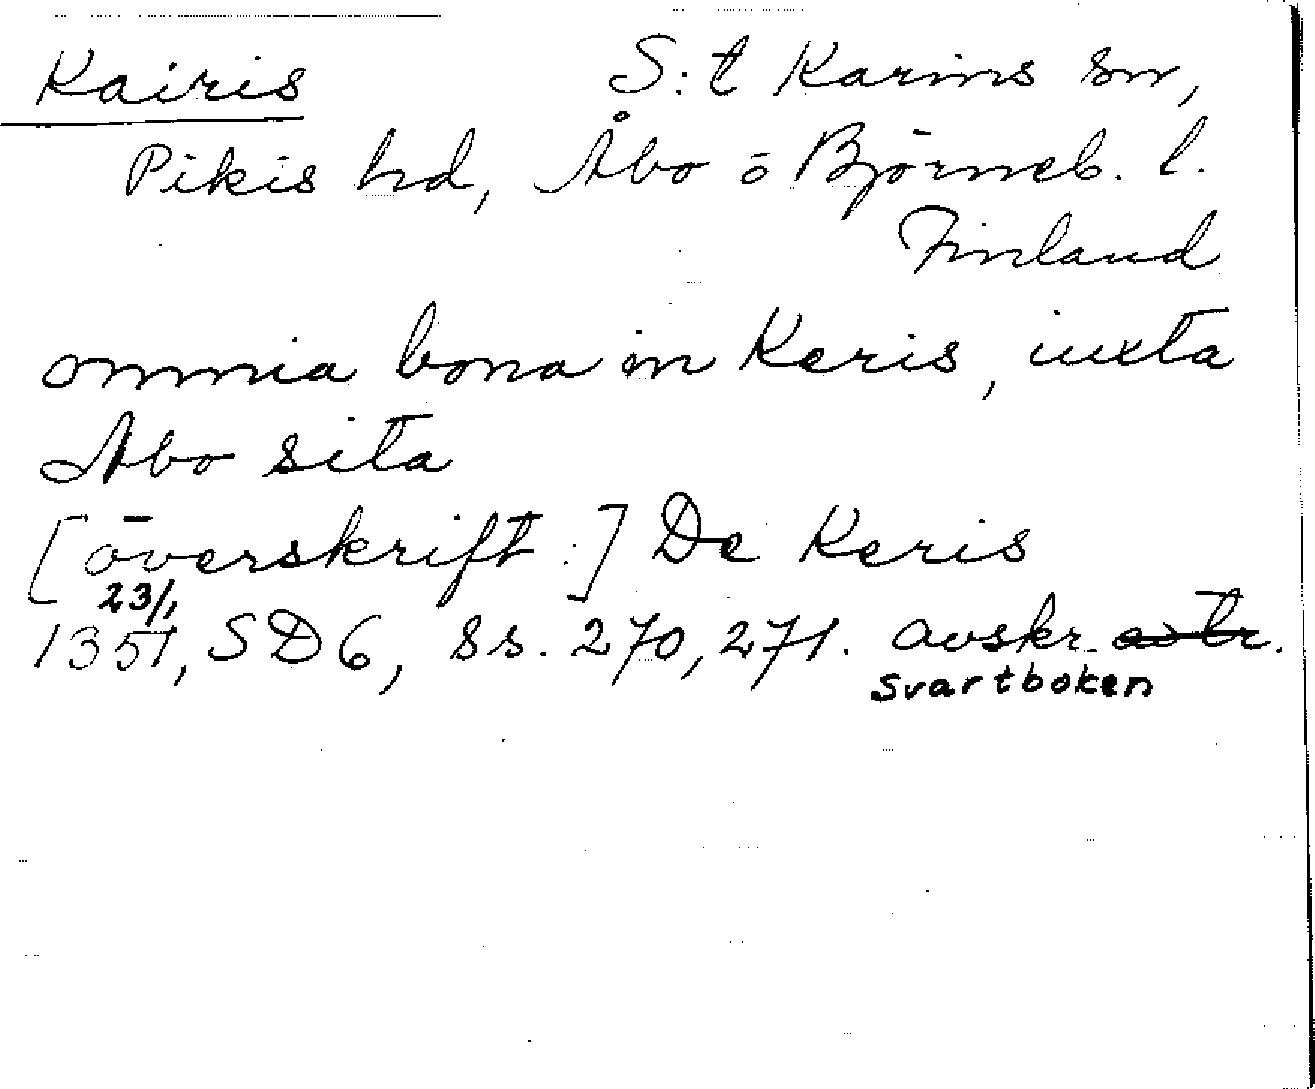 Kairis S:t Karins sn,
Pikis hd, Åbo ō Björneb. l.
Finland
omnia bona in Keris, iuxta
Abo sita
[överskrift:] De Keris
23/1
1351, SD6, ss. 270, 271. avskr.
svartboken